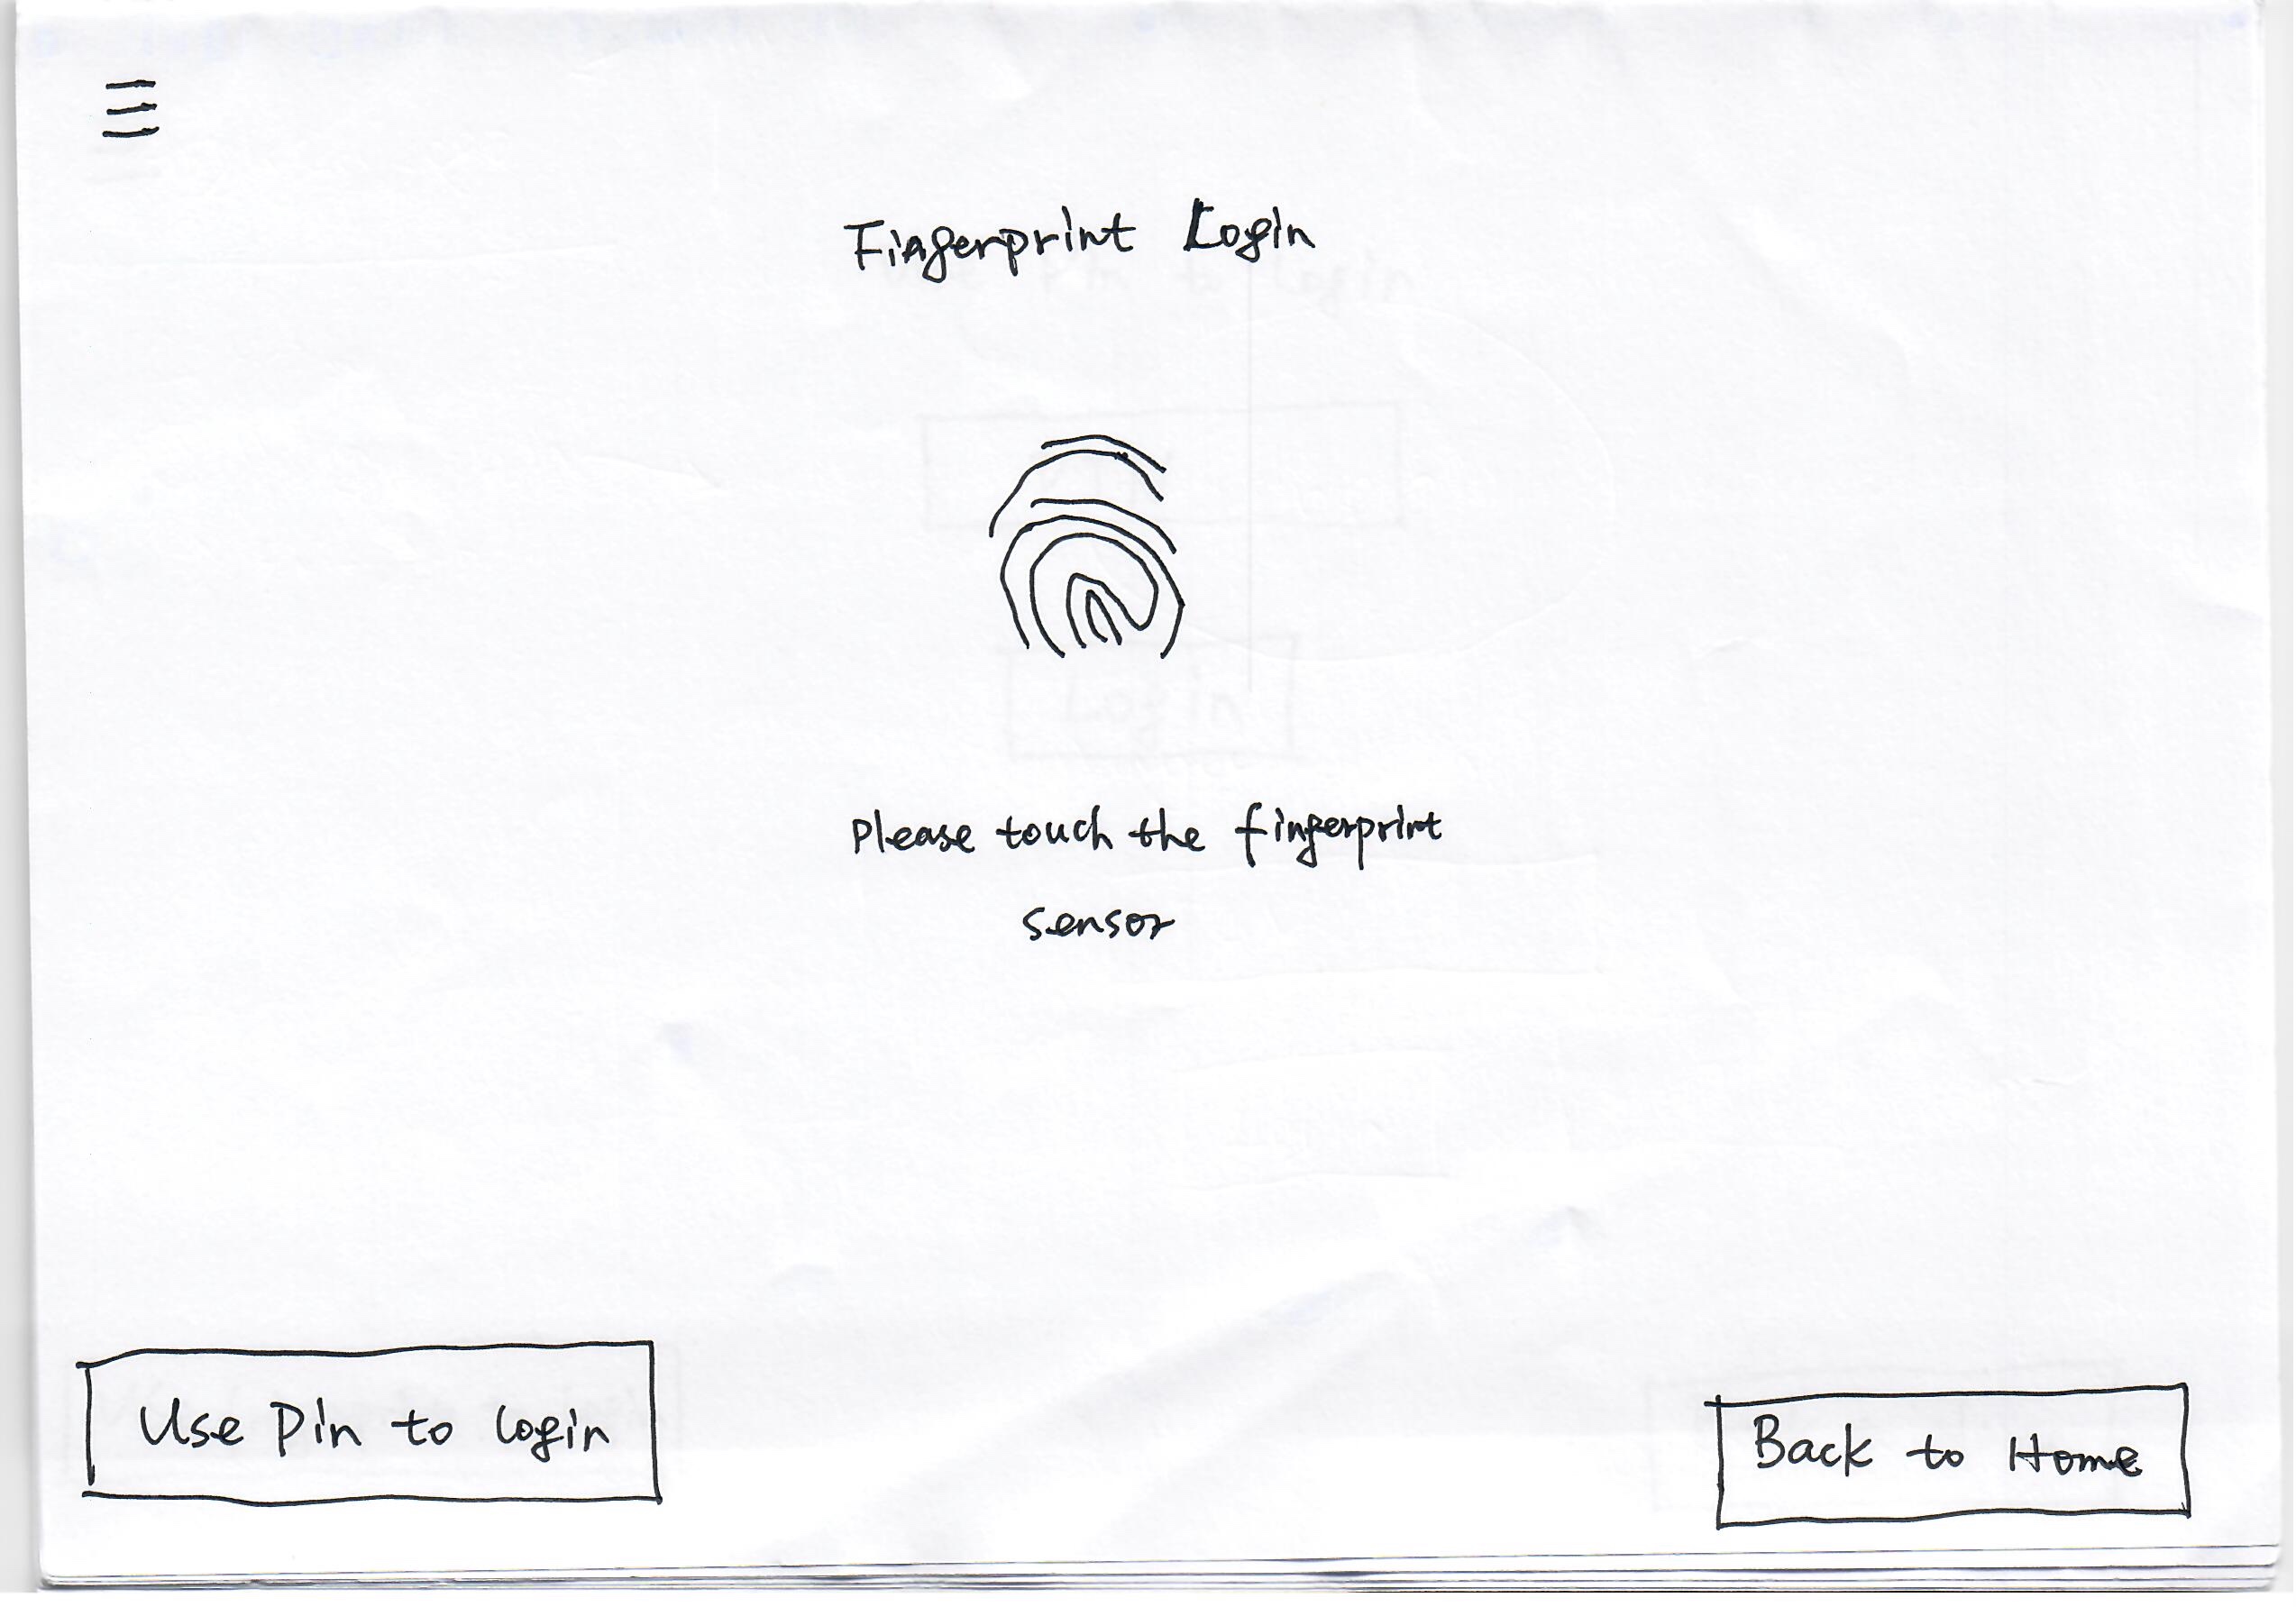 Fingerprint Login
Please touch the fingerprint
sensor
Use Pin to login
Back to Home